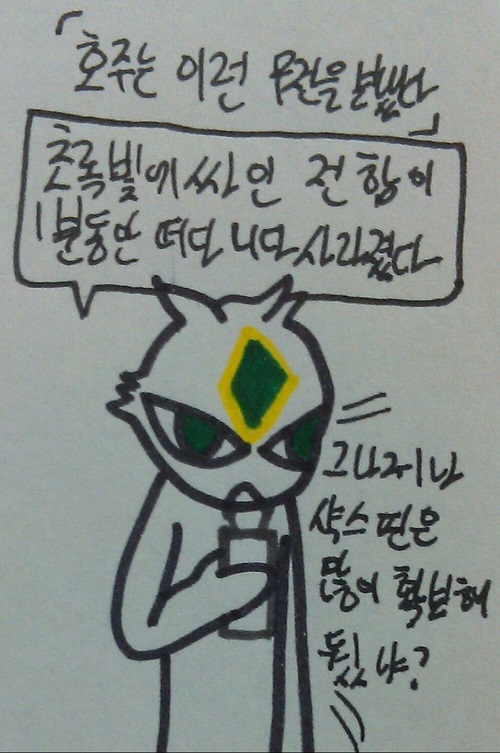 「호주는 이런 문건을 보냈다」
초록빛에 싸인 전함이
1분동안 떠다니다 사라졌다
그나저나
샥스핀은
많이 확보해
뒀냐?